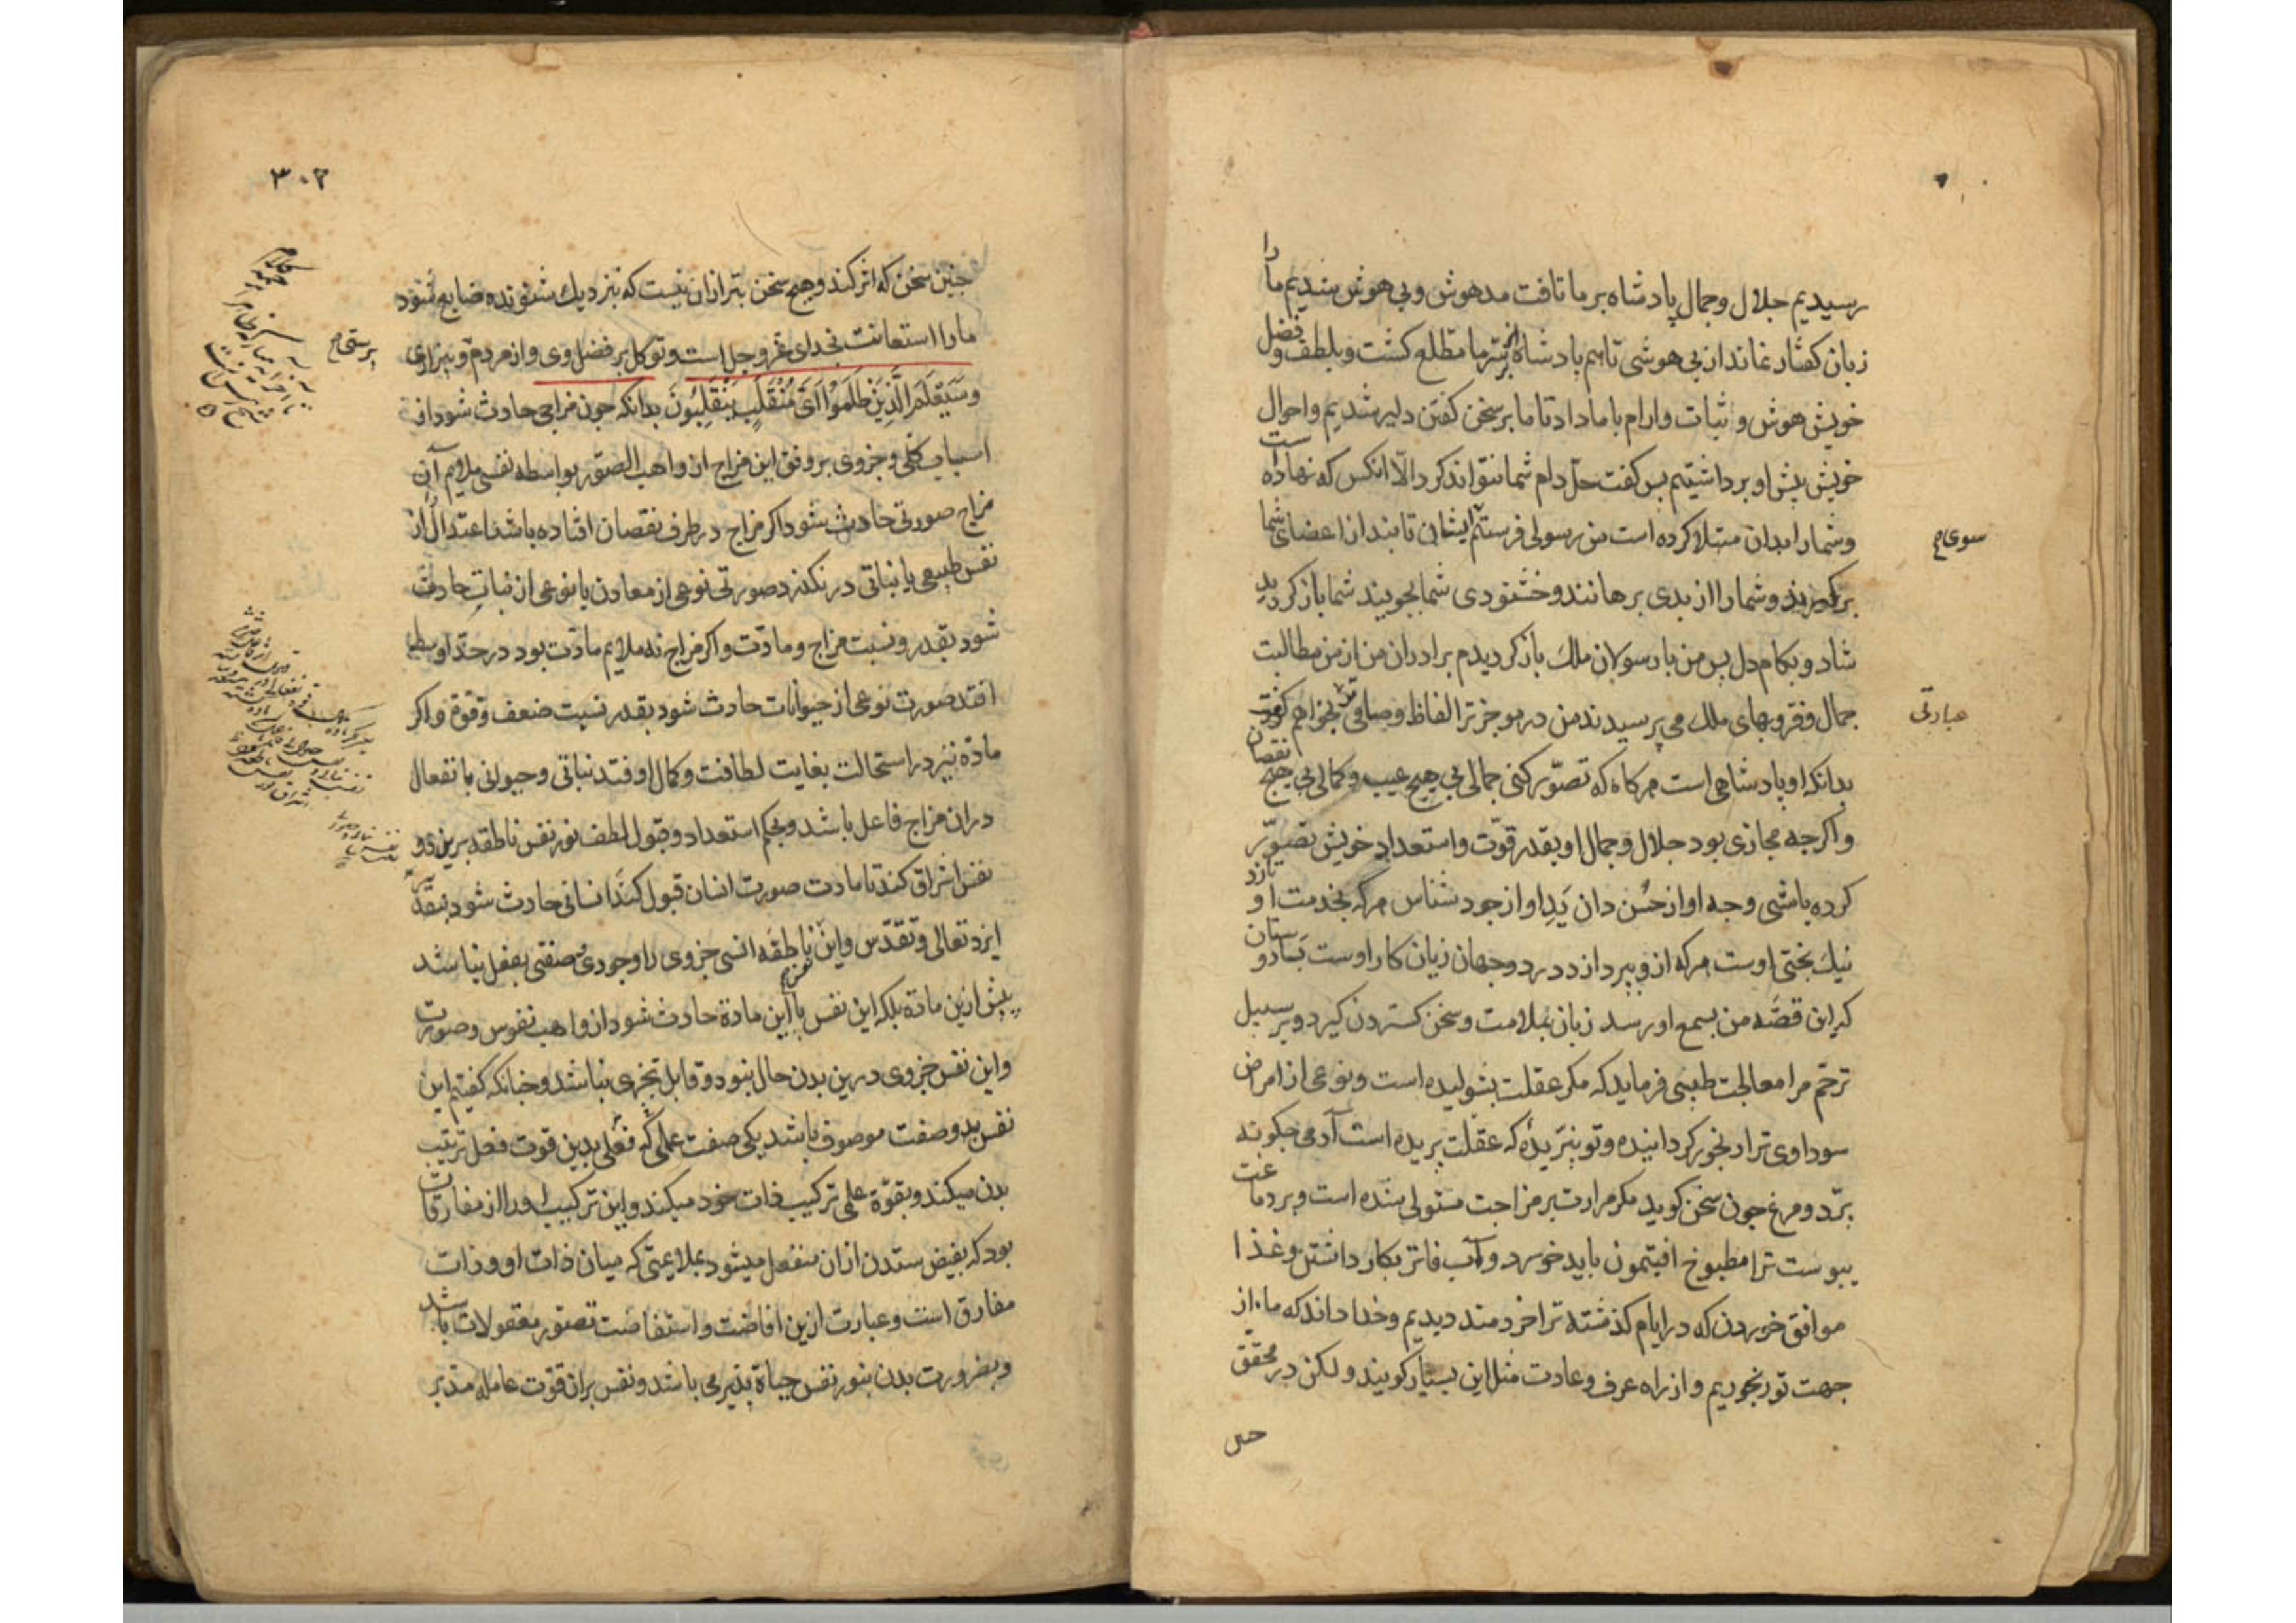 رسیدیم جلال وجمال پادشاه برما تافت مدهوش وبی هوش شدیم مارا
زبان کفتار نماند از بی هوشی تاهم پادشاه بر سر ما مطلع کشت وبلطف وفضل
خویش هوش و ثبات وارام باماداد تا ما بر سخن کفتن دلیر شدیم واحوال
خویش پیش او برداشتیم پس کفت حل دام شما نتواند کرد الا انکس که نهاده است
وشمارا بدان مبتلا کرده است من رسولی فرستم بایشان تا بند از اعضای شما
سوی
برکیرند وشمارا از بدی برهانند وخشنودی شما بجویند شما باز کردید
شاد وبکام دل پس من با رسولان ملک باز کردیدم برادران من از من مطالبت
جمال وفر وبهای ملک می پرسیدند من در موجزتر الفاظ وصافی تر بخواهم کفت
عبارتی
بدانکه او پادشاهی است هرکاه که تصور کنی جمالی بی هیچ عیب وکمالی بی هیچ نقصان
واکرچه مجازی بود جلال وجمال او بقدر قوت واستعداد خویش تصور
کرده باشی وجه او از حسن دان ید او از جود شناس هرکه بخدمت او نازد
نیک بختی اوست هرکه از و بپردازد در دو جهان زیان کار اوست بسا دوستان
که این قصه من بسمع او رسد زبان بملامت وسخن کستردن کیرد وبر سبیل
ترحم مرا معالجت طبیبی فرماید که مکر عقلت بشولیده است ونوعی از امراض
سوداوی ترا رنجور کردانیده وتو نپریده که عقلت پریده است آدمی چکونه
برد ومرغ چون سخن کوید مکر مرارت بر مزاجت مستولی شده است وبر دماغت
یبوست ترا مطبوخ افتیمون باید خورد وآب فاتر بکار داشتن وغذا
موافق خوردن که در ایام کذشته ترا خردمند دیدیم وخدا داند که ما از
جهت تو رنجوریم واز راه عرف وعادت مثل این بسیار کویند ولکن در محقق
۳۰۲
چنین سخن که اثر کند وهیچ سخن بتر ازان نیست که بنزدیک شنونده ضایع شود
مارا استعانت بخدای عز وجل است وتوکل بر فضل وی واز مردم وبیزاری
وَسَیَعْلَمُ الَّذِینَ ظَلَمُوا اَیَّ مُنْقَلَبٍ یَنْقَلِبُونَ بدانکه چون مزاجی حادث شود از
اسباب کلی وجزوی بر وفق این مزاج از واهب الصور بواسطه نفسی ملایم آن
مزاج صورتی حادث شود اکر مزاج در طرف نقصان افتاده باشد اعتدال از
نفس طبیعی یا نباتی درنکذرد صورتی نوعی از معادن یا نوعی از نبات حادث
شود بقدر ونسبت مزاج ومادت واکر مزاج نه ملایم مادت بود در حد اوسط
افتد صورت نوعی از حیوانات حادث شود بقدر نسبت ضعف وقوة واکر
ماده نیز در استحالت بغایت لطافت وکمال اوفتد نباتی وحیوانی بانفعال
دران مزاج فاعل باشد وبحکم استعداد وقبول لطف نور نفس ناطقه برین دو
نفس اشراق کند تا مادت صورت انسان قبول کند انسانی حادث شود بتقدیر
ایزد تعالی وتقدس واین ناطقه انسی جزوی را وجودی صنفی بفعل نباشد
پیش ازین مادة بلکه این نفس با این مادة حادث شود از واهب نفوس وصورت
واین نفس جزوی درین بدن حال نبود وقابل تجزی نباشد وچنانکه کفتیم این
نفس بدو صفت موصوف باشد یکی صفت عملی که فعلی بدین قوت فعل ترتیب
بدن میکند وبقوة علمی ترکیب ذات خود میکند واین ترکیب او را از مفارقات
بود که بفیض ستدن ازان منفعل میشود بملایمتی که میان ذات او وذات
مفارق است وعبارت ازین افاضت واستفاضت تصور معقولات باشد
وبضرورت بدن بنور نفس حیاة پذیر می باشد ونفس بران قوت عامله مدبر